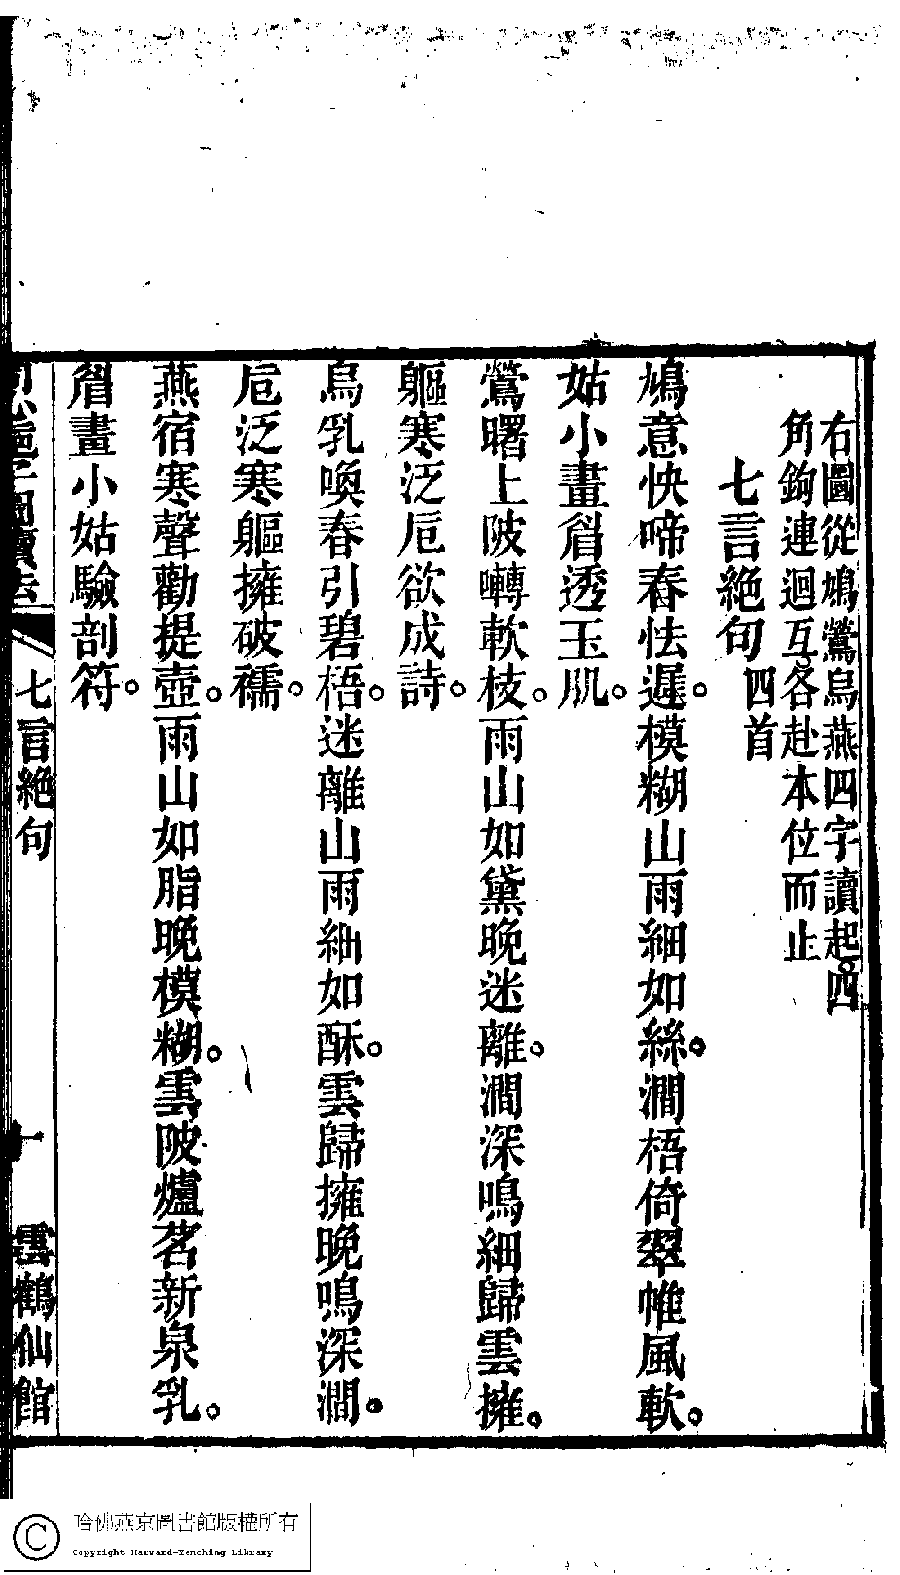 右圖從鳩鶯烏燕四字讀起。四
角鉤連迴互。各赴本位而止
七言絕句 四首
鳩意怏啼春怯遲。模糊山雨細如絲。澗梧倚翠帷風軟。
姑小畫眉透玉肌。
鶯曙上陂囀軟枝。雨山如黛晚迷離。澗深鳴細歸雲擁。
軀寒泛卮欲成詩。
烏乳喚春引碧梧。迷離山雨細如酥。雲歸擁晚鳴深澗。
卮泛寒軀擁破襦。
燕宿寒聲勸提壺。雨山如脂晚模糊。雲陂爐茗新泉乳。
眉畫小姑驗剖符。
七言絕句
十
雲鶴仙館
哈佛燕京圖書館版權所有
Copyright Harvard-Yenching Library